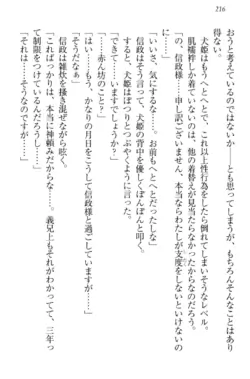 216
おうと考えているのではないか――とも思ってしまうが、もちろんそんなことはあり
得ない。
犬姫ももうへとへとで、これ以上性行為をしたら倒れてしまいそうなレベル。
肌襦袢しか着ていないのは、他の着替えが見当たらなかったからなのだろう。
「の、信政様……申し訳ございません。本当ならわたしが支度をしないといけないの
に……」
「いいさ、気にしないでくれ。お前もへとへとだろう」
信政はそう言って、犬姫の背中を優しくぽんぽんと叩く。
すると、犬姫はぽつりとつぶやいた。
「……赤ん坊は……まだでしょうか？」
「え？」
「いえ……もう、かなりの月日をこうして信政様と過ごしていますが……」
「そうだなぁ」
信政は雑炊を掻き混ぜながら呟く。
「こればっかりは、本当に神頼みだからな……。義兄上もそれがわかってて、三年っ
て制限をつけているんだろうし……」
「それは……そうなのですが……」